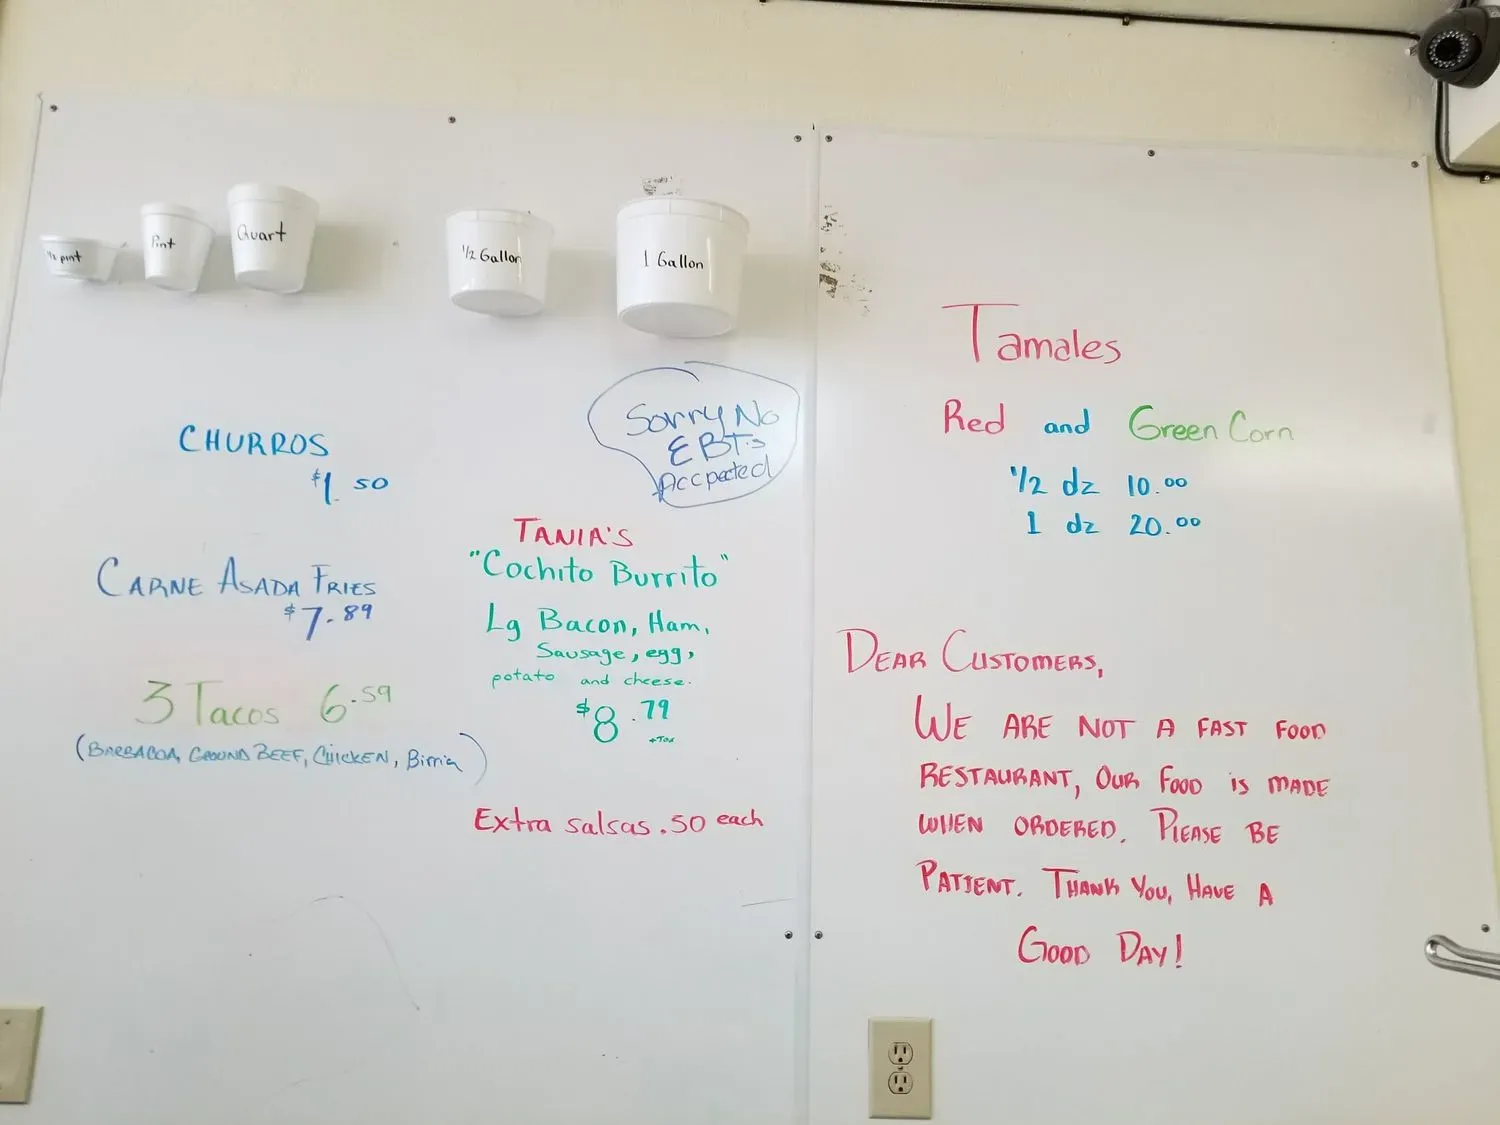 1/2 pint
Pint
Quart
1/2 Gallon
1 Gallon
CHURROS
$1.50
CARNE ASADA FRIES
$7.89
3 Tacos 6.59
(BARBACOA, GROUND BEEF, CHICKEN, Birria)
Sorry No
EBT's
Accpected
TANIA'S
"Cochito Burrito"
Lg Bacon, Ham,
Sausage, egg,
potato and cheese.
$8.79
+Tax
Extra salsas .50 each
Tamales
Red and Green Corn
1/2 dz 10.00
1 dz 20.00
DEAR CUSTOMERS,
WE ARE NOT A FAST FOOD
RESTAURANT, OUR FOOD IS MADE
WHEN ORDERED. PLEASE BE
PATIENT. THANK YOU, HAVE A
GOOD DAY!